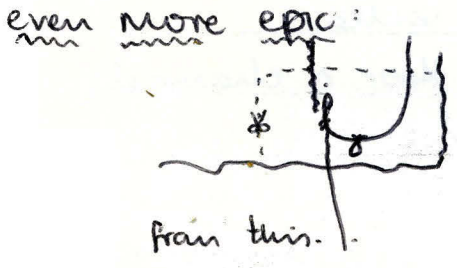 even more epic:
from this.